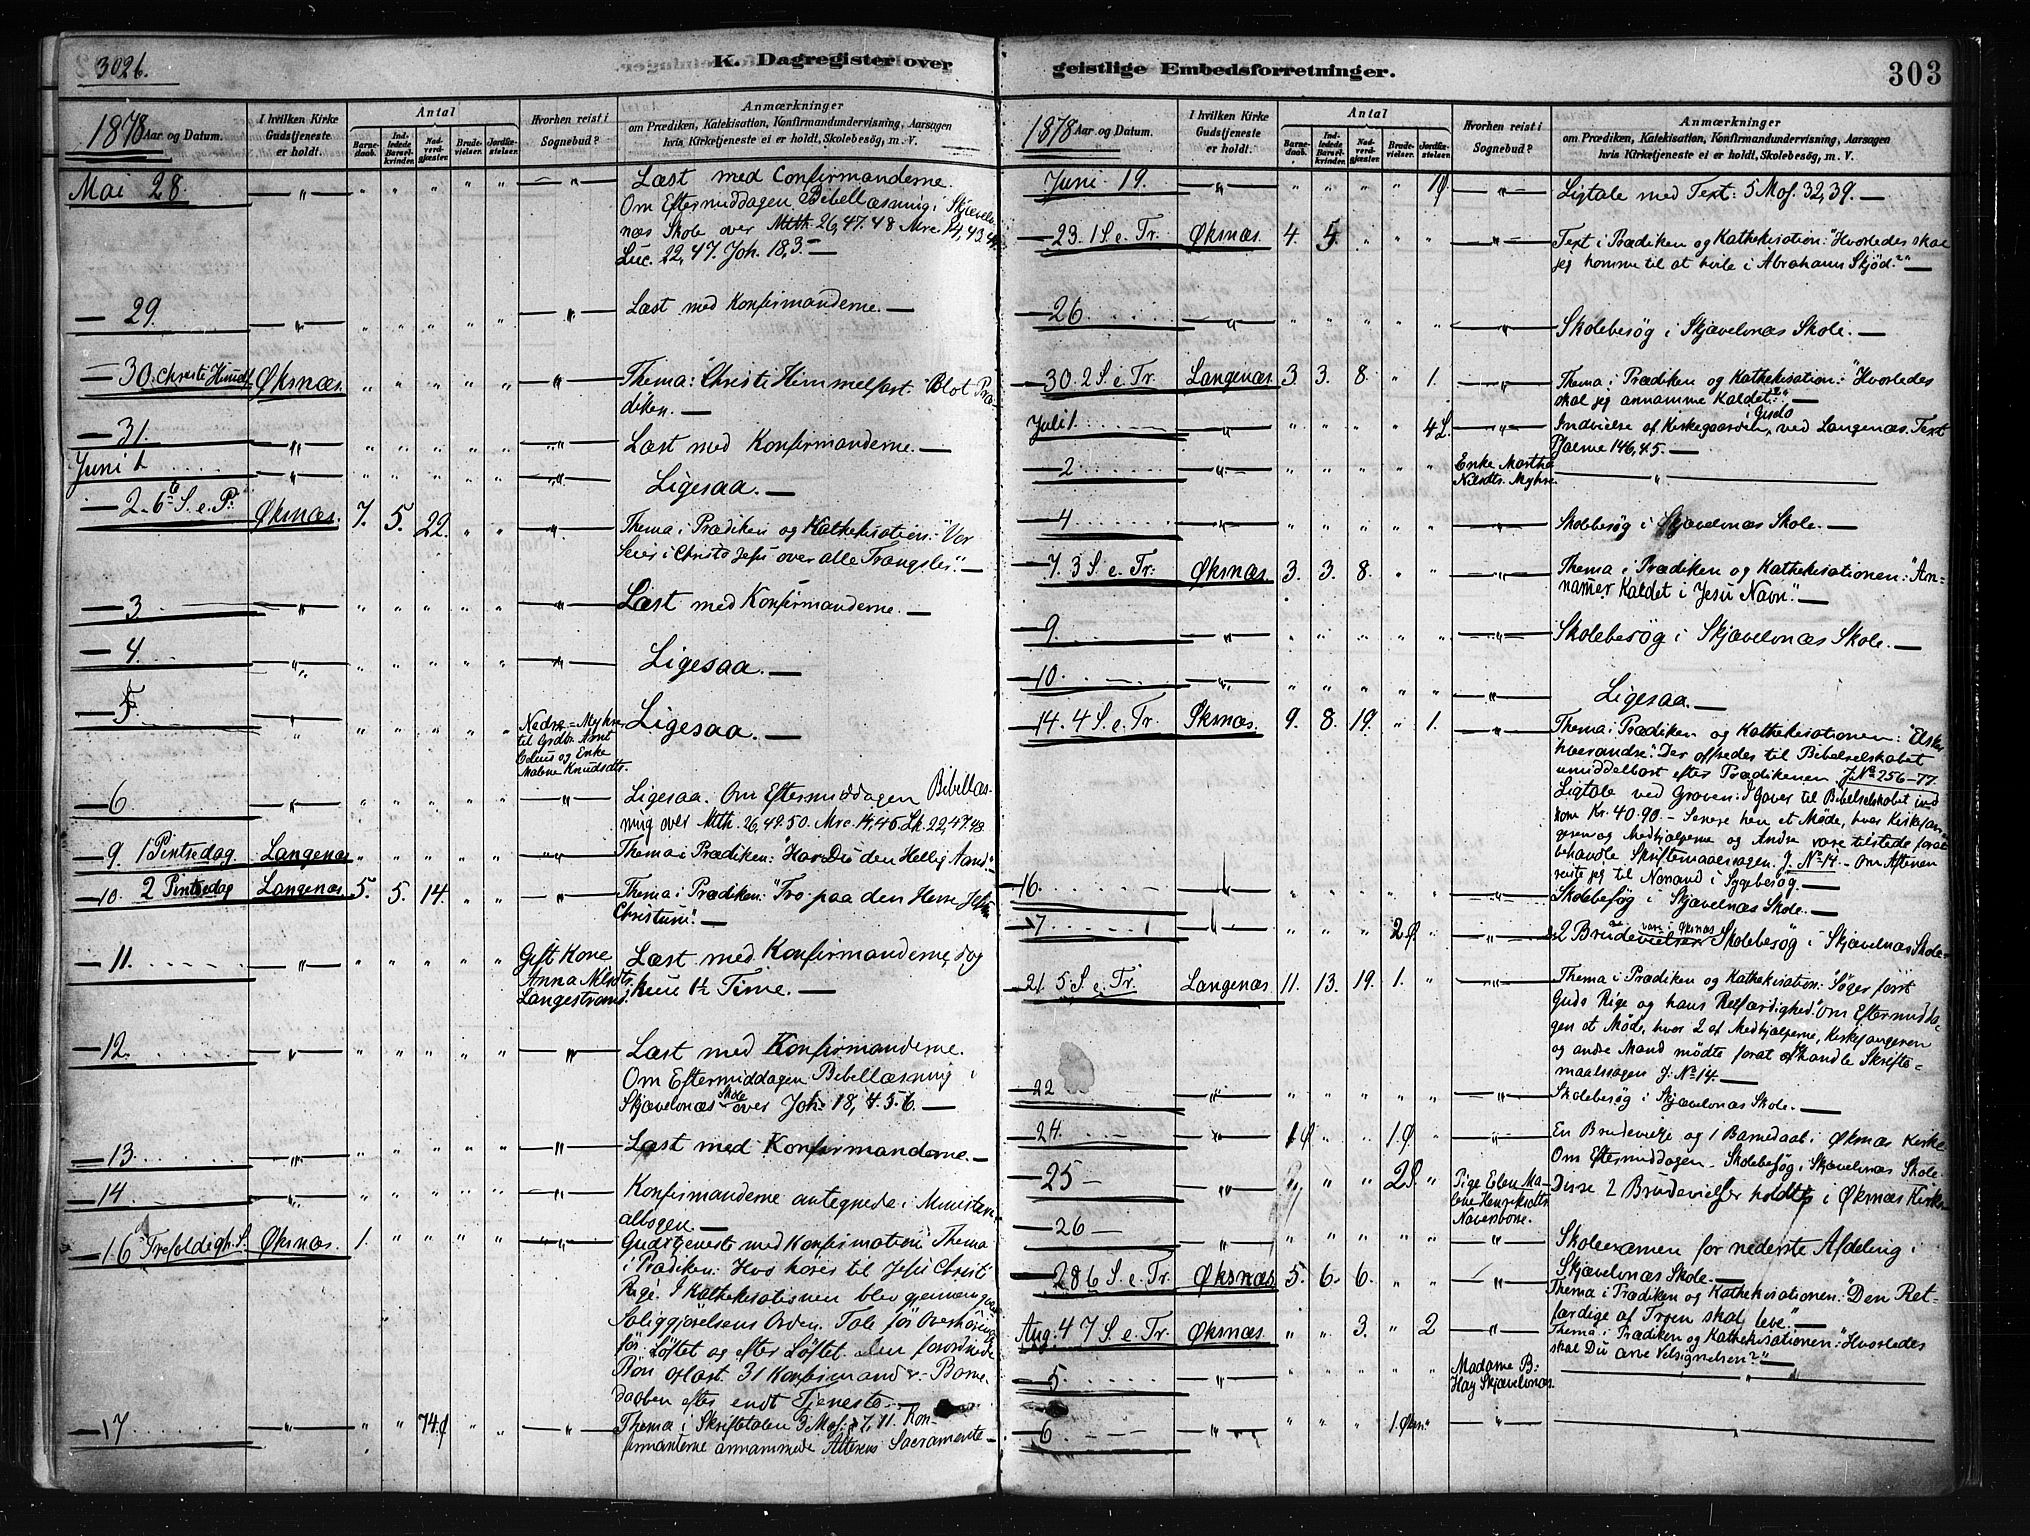 302b.
K. Dagregister over
1878 Aar og Datum.
I hvilken Kirke Gudstjeneste er holdt.
Antal
Barnedaab.
Indledede Barselkvinder.
Nadverdgjester.
Brudevielser.
Jordfæstelser.
Hvorhen reist i Sognebud?
Anmærkninger
om Prædiken, Katekisation, Konfirmandundervisning, Aarsagen
hvis Kirketjeneste ei er holdt, Skolebesøg, m. V.
Mai 28 Læst med Confirmanderne.
Om Eftermiddagen Bibellæsning i Skjævel-
næs Skole over Matth. 26,47.48 Mrc. 14,43.44
Luc. 22,47. Joh. 18,3. —
— 29. Læst med Konfirmanderne. —
— 30. Christi Himelf. Øksnæs. Thema: Christi Himmelfart. Blot Præ-
diken. —
— 31. Læst med Konfirmanderne. —
Juni 1 Ligesaa. —
— 2. 6te S. e. P. Øksnæs. 7. 5. 22. Thema i Prædiken og Kathekisation: "Vor
Seier i Christo Jesu over alle Trængsler". —
— 3 Læst med Konfirmanderne. —
— 4. Ligesaa. —
— 5 Nedre-Myhre Ligesaa. —
til Grdbr. Arnt
Odeus og Enke
Malene Knudsdtr.
— 6 Ligesaa. Om Eftermiddagen Bibellæs-
ning over Mtth. 26,49.50. Mrc. 14,45. Lk. 22,47.48
— 9 1 Pintsedag Langenæs Thema i Prædiken: "Har Du den Hellig Aand"
— 10. 2 Pintsedag Langenæs. 5. 5. 14. Thema i Prædiken: "Tro paa den Herre Jesum
Christum". —
— 11. Gift Kone Læst med Konfirmanderne, dog
Anna Nilsdtr. kun 1½ Time. —
Langestrand.
— 12. Læst med Konfirmanderne.
Om Eftermiddagen Bibellæsning i
Skjævelnæs Skole over Joh. 18, 4.5.6. —
— 13. Læst med Konfirmanderne. —
— 14 Konfirmanderne antegnede i Ministeri-
albogen. —
— 16 Trefoldigh. S. Øksnæs. 1. Gudstjeneste med Konfirmation Thema
i Prædiken: Hvo hører til Jesu Christi
Rige. I Kathekisationen blev gjennemgaaet
Saliggjørelsens Orden. Tale før Overhøringen
før Løftet og efter Løftet. Den forordnede
Bøn oplæst. 31 Konfirmander. Barne-
daaben efter endt Tjeneste. —
— 17 74 Ø Thema i Skriftetalen 3 Mos: 17,11. Kon-
firmanterne annammede Alterens Sacramente —
geistlige Embedsforretninger.
303
1878 Aar og Datum.
I hvilken Kirke Gudstjeneste er holdt.
Antal
Barnedaab.
Indledede Barselkvinder.
Nadverdgjester.
Brudevielser.
Jordfæstelser.
Hvorhen reist i Sognebud?
Anmærkninger
om Prædiken, Katekisation, Konfirmandundervisning, Aarsagen
hvis Kirketjeneste ei er holdt, Skolebesøg, m. V.
Juni 19. 1Ø Ligtale med Text: 5 Mos. 32,39. —
— 23. 1 S. e. Tr. Øksnæs 4. 5 Text i Prædiken og Kathekisation: "Hvorledes skal
jeg komme til at hvile i Abrahams Skjød?" —
— 26 Skolebesøg i Skjævelnæs Skole. —
— 30. 2 S. e. Tr. Langenæs. 3. 3. 8. 1. Thema i Prædiken og Kathekisation: "Hvorledes
skal jeg annamme Kaldet?" —
Juli 1. 4 L. Indvielse af Kirkegaarden ved Langenæs. Text
Psalme 146, 4.5. —
— 2 Enke Martha
Nilsdtr. Myhre.
— 4 Skolebesøg i Skjævelnæs Skole. —
— 7. 3 S. e. Tr. Øksnæs 3. 3. 8. Thema i Prædiken og Kathekisationen: "An-
nammer Kaldet i Jesu Navn". —
— 9 Skolebesøg i Skjævelnæs Skole. —
— 10. Ligesaa. —
— 14. 4 S. e. Tr. Øksnæs. 9. 8. 19. 1. Thema i Prædiken og Kathekisationen: "Elsker
hverandre". Der offredes til Bibelselskabet
umiddelbart efter Prædikenen. J. No 256–77.
Ligtale ved Graven. I Gaver til Bibelselskabet ind
kom Kr. 40.90. — Senere hen et Møde, hvor Kirkesan-
geren og Medhjælperne og Andre vare tilstede forat
behandle Skriftemaalssagen. J. No 14. — Om Aftenen
reiste jeg til Norsand i Sygebesøg. —
— 16. Skolebesøg i Skjævelnæs Skole. —
— 17 2 Ø 2 Brudevielser vare i Øksnæs. Skolebesøg i Skjævelnæs Skole.
— 21 5 S. e. Tr. Langenæs 11. 13. 19. 1. Thema i Prædiken og Kathekisation: "Søger først
Guds Rige og hans Retfærdighed". Om Eftermidda-
gen et Møde, hvor 2 af Medhjælperne, Kirkesangeren
og andre Mænd mødte forat afhandle Skrifte-
maalssagen J. No 14. —
— 22 Skolebesøg i Skjævelnæs Skole. —
— 24. 1 Ø 1 Ø En Brudevielse og 1 Barnedaab i Øksnæs Kirke
Om Eftermiddagen — Skolebesøg i Skjævelnæs Skole.
— 25 — 2 Ø Pige Ellen Ma-
lene Henriksdtr.
Disse 2 Brudevielser holdtes i Øksnæs Kirke.
— 26 — Skoleexamen for nederste Afdeling i
Skjævelnæs Skole. —
— 28 6 S. e. Tr. Øksnæs 5. 6. 6. Thema i Prædiken og Kathekisationen: "Den Ret-
færdige af Troen skal leve". —
Aug: 4 7 S. e. Tr. Øksnæs. 3. 2 Thema i Prædiken og Kathekisationen: "Hvorledes
skal Du arve Velsignelsen?" —
— 5 Madame B:
Hay Skjævelnæs.
— 6 1. Øksn.